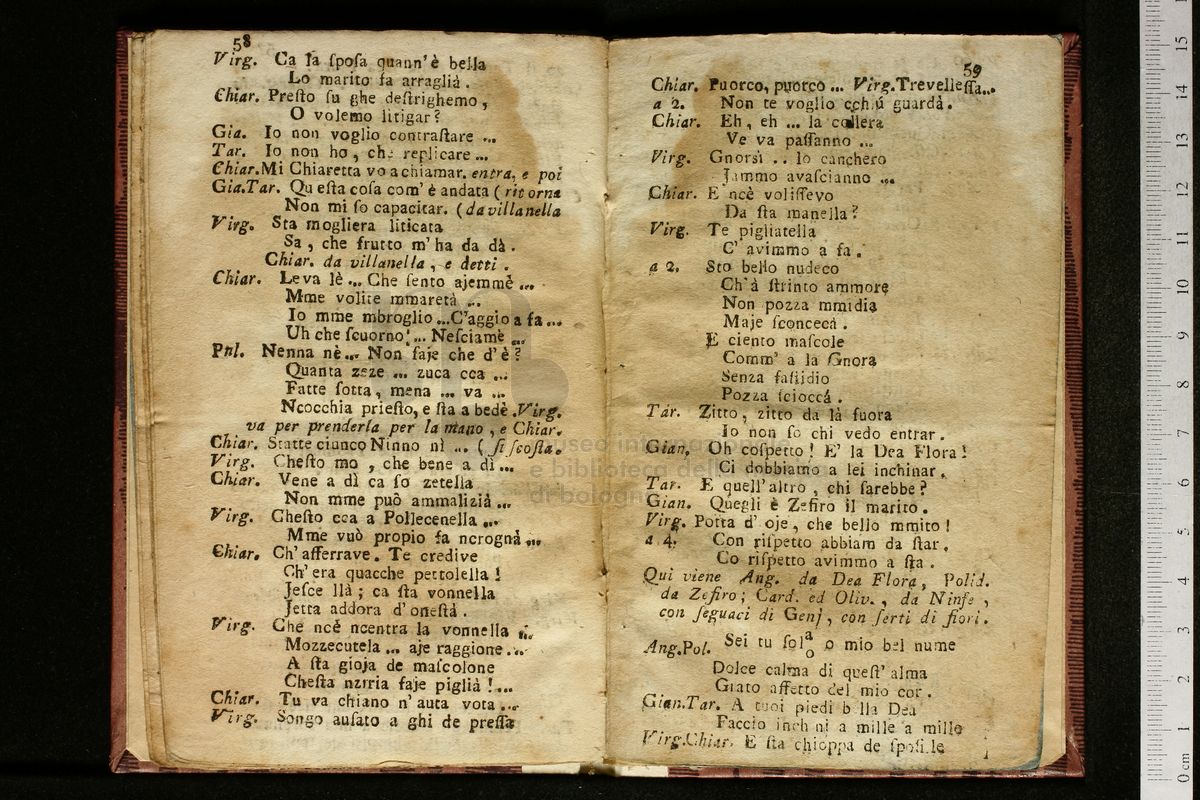 58
Virg. Ca la ſpoſa quann' è bella
Lo marito fa arraglià.
Chiar. Preſto ſu ghe deſtrighemo,
O volemo litigar?
Gia. Io non voglio contraſtare ...
Tar. Io non ho, che replicare ...
Chiar. Mi Chiaretta vo a chiamar. entra, e poi
Gia.Tar. Queſta coſa com' è andata (ritorna
Non mi ſo capacitar. (da villanella
Virg. Sta mogliera liticata
Sa, che frutto m' ha da dà.
Chiar. da villanella, e detti.
Chiar. Leva lè ... Che ſento ajemmè ...
Mme volite mmaretà ...
Io mme mbroglio ... C'aggio a fa ...
Uh che ſcuorno! ... Neſciamè ...
Pnl. Nenna nè ... Non ſaje che d' è?
Quanta zeze ... zuca cca ...
Fatte ſotta, mena ... va ...
Ncocchia prieſto, e ſta a bedè. Virg.
va per prenderla per la mano, e Chiar.
Chiar. Statte ciunco Ninno nì ... (ſi ſcoſta.
Virg. Cheſto mo, che bene a dì ...
Chiar. Vene a dì ca ſo zetella
Non mme può ammalizià ...
Virg. Cheſto cca a Pollecenella ...
Mme vuò propio fa ncrognà ...
Chiar. Ch' afferrave. Te credive
Ch' era quacche pettolella!
Jeſce llà; ca ſta vonnella
Jetta addora d' oneſtà.
Virg. Che ncè ncentra la vonnella ...
Mozzecutela ... aje raggione ...
A ſta gioja de maſcolone
Cheſta nzirria faje piglià! ...
Chiar. Tu va chiano n' auta vota ...
Virg. Songo auſato a ghi de preſſa
59
Chiar. Puorco, puorco ... Virg. Trevelleſſa...
a 2. Non te voglio cchiú guardà.
Chiar. Eh, eh ... la collera
Ve va paſſanno ...
Virg. Gnorsì .. lo canchero
Jammo avaſcianno ...
Chiar. E ncè voliſſevo
Da ſta manella?
Virg. Te pigliatella
C' avimmo a fa.
a 2. Sto bello nudeco
Ch'à ſtrinto ammore
Non pozza mmidia
Maje ſconcecà.
E ciento maſcole
Comm' a la Gnora
Senza faſtidio
Pozza ſcioccà.
Tar. Zitto, zitto da là fuora
Io non ſo chi vedo entrar.
Gian. Oh coſpetto! E' la Dea Flora!
Ci dobbiamo a lei inchinar.
Tar. E quell' altro, chi ſarebbe?
Gian. Quegli è Zefiro il marito.
Virg. Potta d' oje, che bello mmito!
a 4. Con riſpetto abbiam da ſtar.
Co riſpetto avimmo a ſta.
Qui viene Ang. da Dea Flora, Polid.
da Zefiro; Card. ed Oliv., da Ninfe,
con ſeguaci di Genj, con ſerti di fiori.
Ang.Pol. Sei tu ſol a o o mio bel nume
Dolce calma di queſt' alma
Grato affetto del mio cor.
Gian.Tar. A tuoi piedi b lla Dea
Faccio inch ni a mille a mille
Virg.Chiar. E ſta chioppa de ſpoſi.le